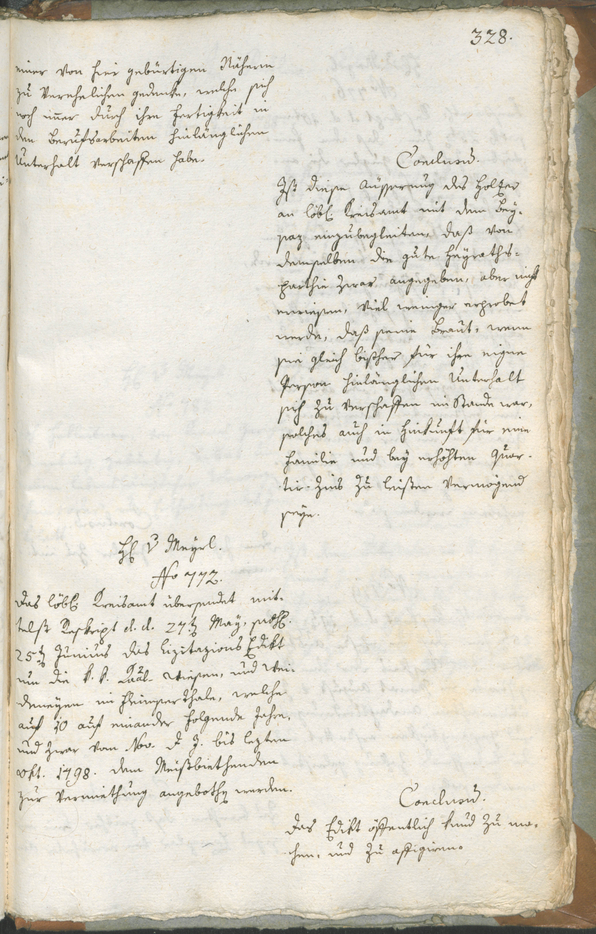 328.
einer von hier gebürtigen Näherin
zu verehelichen gedenke, welche sich
noch immer durch ihre Fertigkeit in
den Berufsarbeiten hinlänglichen
Unterhalt verschaffen habe.
Conclusum.
Ist diese Äusserung des Holzer
an löbl. Kreisamt mit dem Bey-
saz einzubegleiten, daß von
demselben die gute Heyraths-
parthie zwar angegeben, aber nicht
erwiesen, viel weniger erprobet
werde, daß seine Braut, wenn
sie gleich bißher für ihre eigne
Person hinlänglichen Unterhalt
sich zu verschaffen im Stande war,
solches auch in Hinkunft für eine
Familie und bey erhöhten Quar-
tier-Zins zu leisten vermögend
seye.
H. v Mayrl.
No 772.
Das löbl. Kreisamt übersendet mit-
telst Reskript d. d. 27ten May,
25ten Junius das Lizitazions Edikt
um die k. k. Wiesen, und Wei-
dereyen im Thale, welche
auf 10 auf einander folgende Jahre,
und zwar vom Nov. d. J. bis lezten
Okt. 1798. dem Meistbiethenden
zur Vermiethung angebothen werden.
Conclusum.
Das Edikt öffentlich kund zu ma-
chen, und zu affigiren.